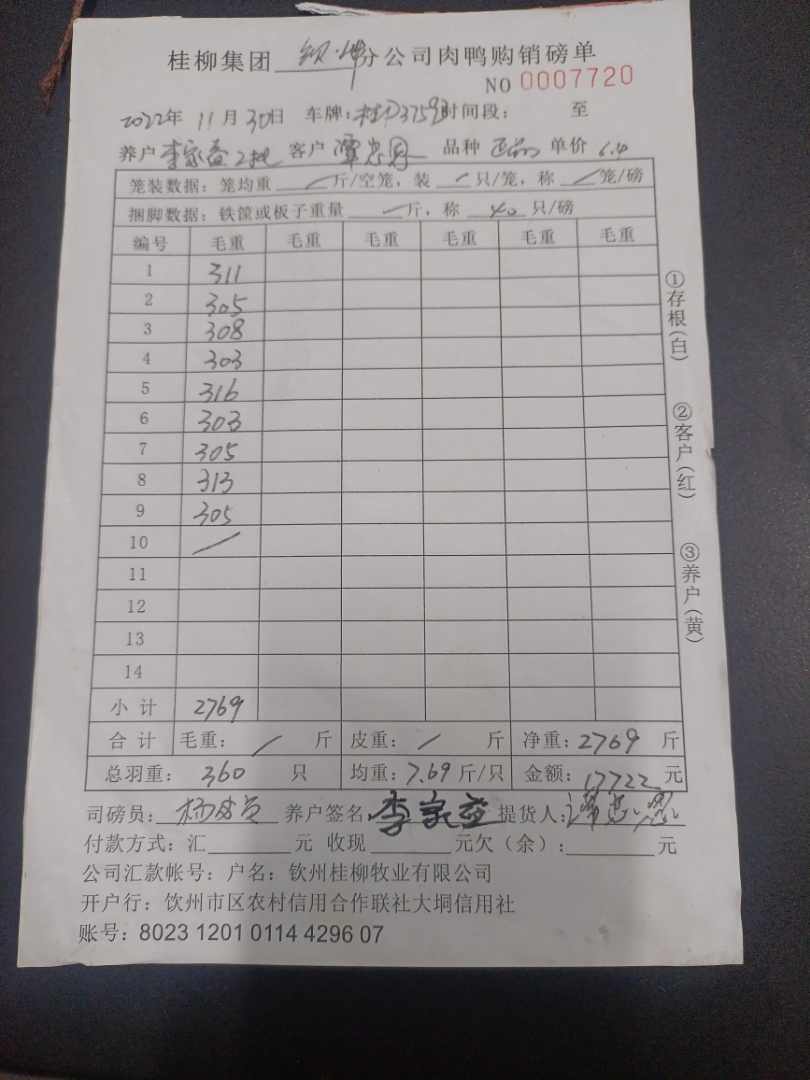 桂柳集团 钦州分公司肉鸭购销磅单
NO 0007720
2022年 11月30日 车牌:桂D3759 时间段: 至
养户 李家益2批 客户 品种 单价 6.4
笼装数据: 笼均重 / 斤/空笼, 装 / 只/笼, 称 / 笼/磅
捆脚数据: 铁筐或板子重量 / 斤, 称 40 只/磅
编号 毛重 毛重 毛重 毛重 毛重 毛重
1 311
2 305
3 308
4 303
5 316
6 303
7 305
8 313
9 305
10 /
11
12
13
14
小计 2769
合计 毛重: / 斤 皮重: / 斤 净重: 2769 斤
总羽重: 360 只 均重: 7.69 斤/只 金额: 17722 元
司磅员: 养户签名 李家益 提货人:
付款方式: 汇 元 收现 元欠(余): 元
公司汇款帐号: 户名: 钦州桂柳牧业有限公司
开户行: 钦州市区农村信用合作联社大垌信用社
账号: 8023 1201 0114 4296 07
①存根(白)
②客户(红)
③养户(黄)